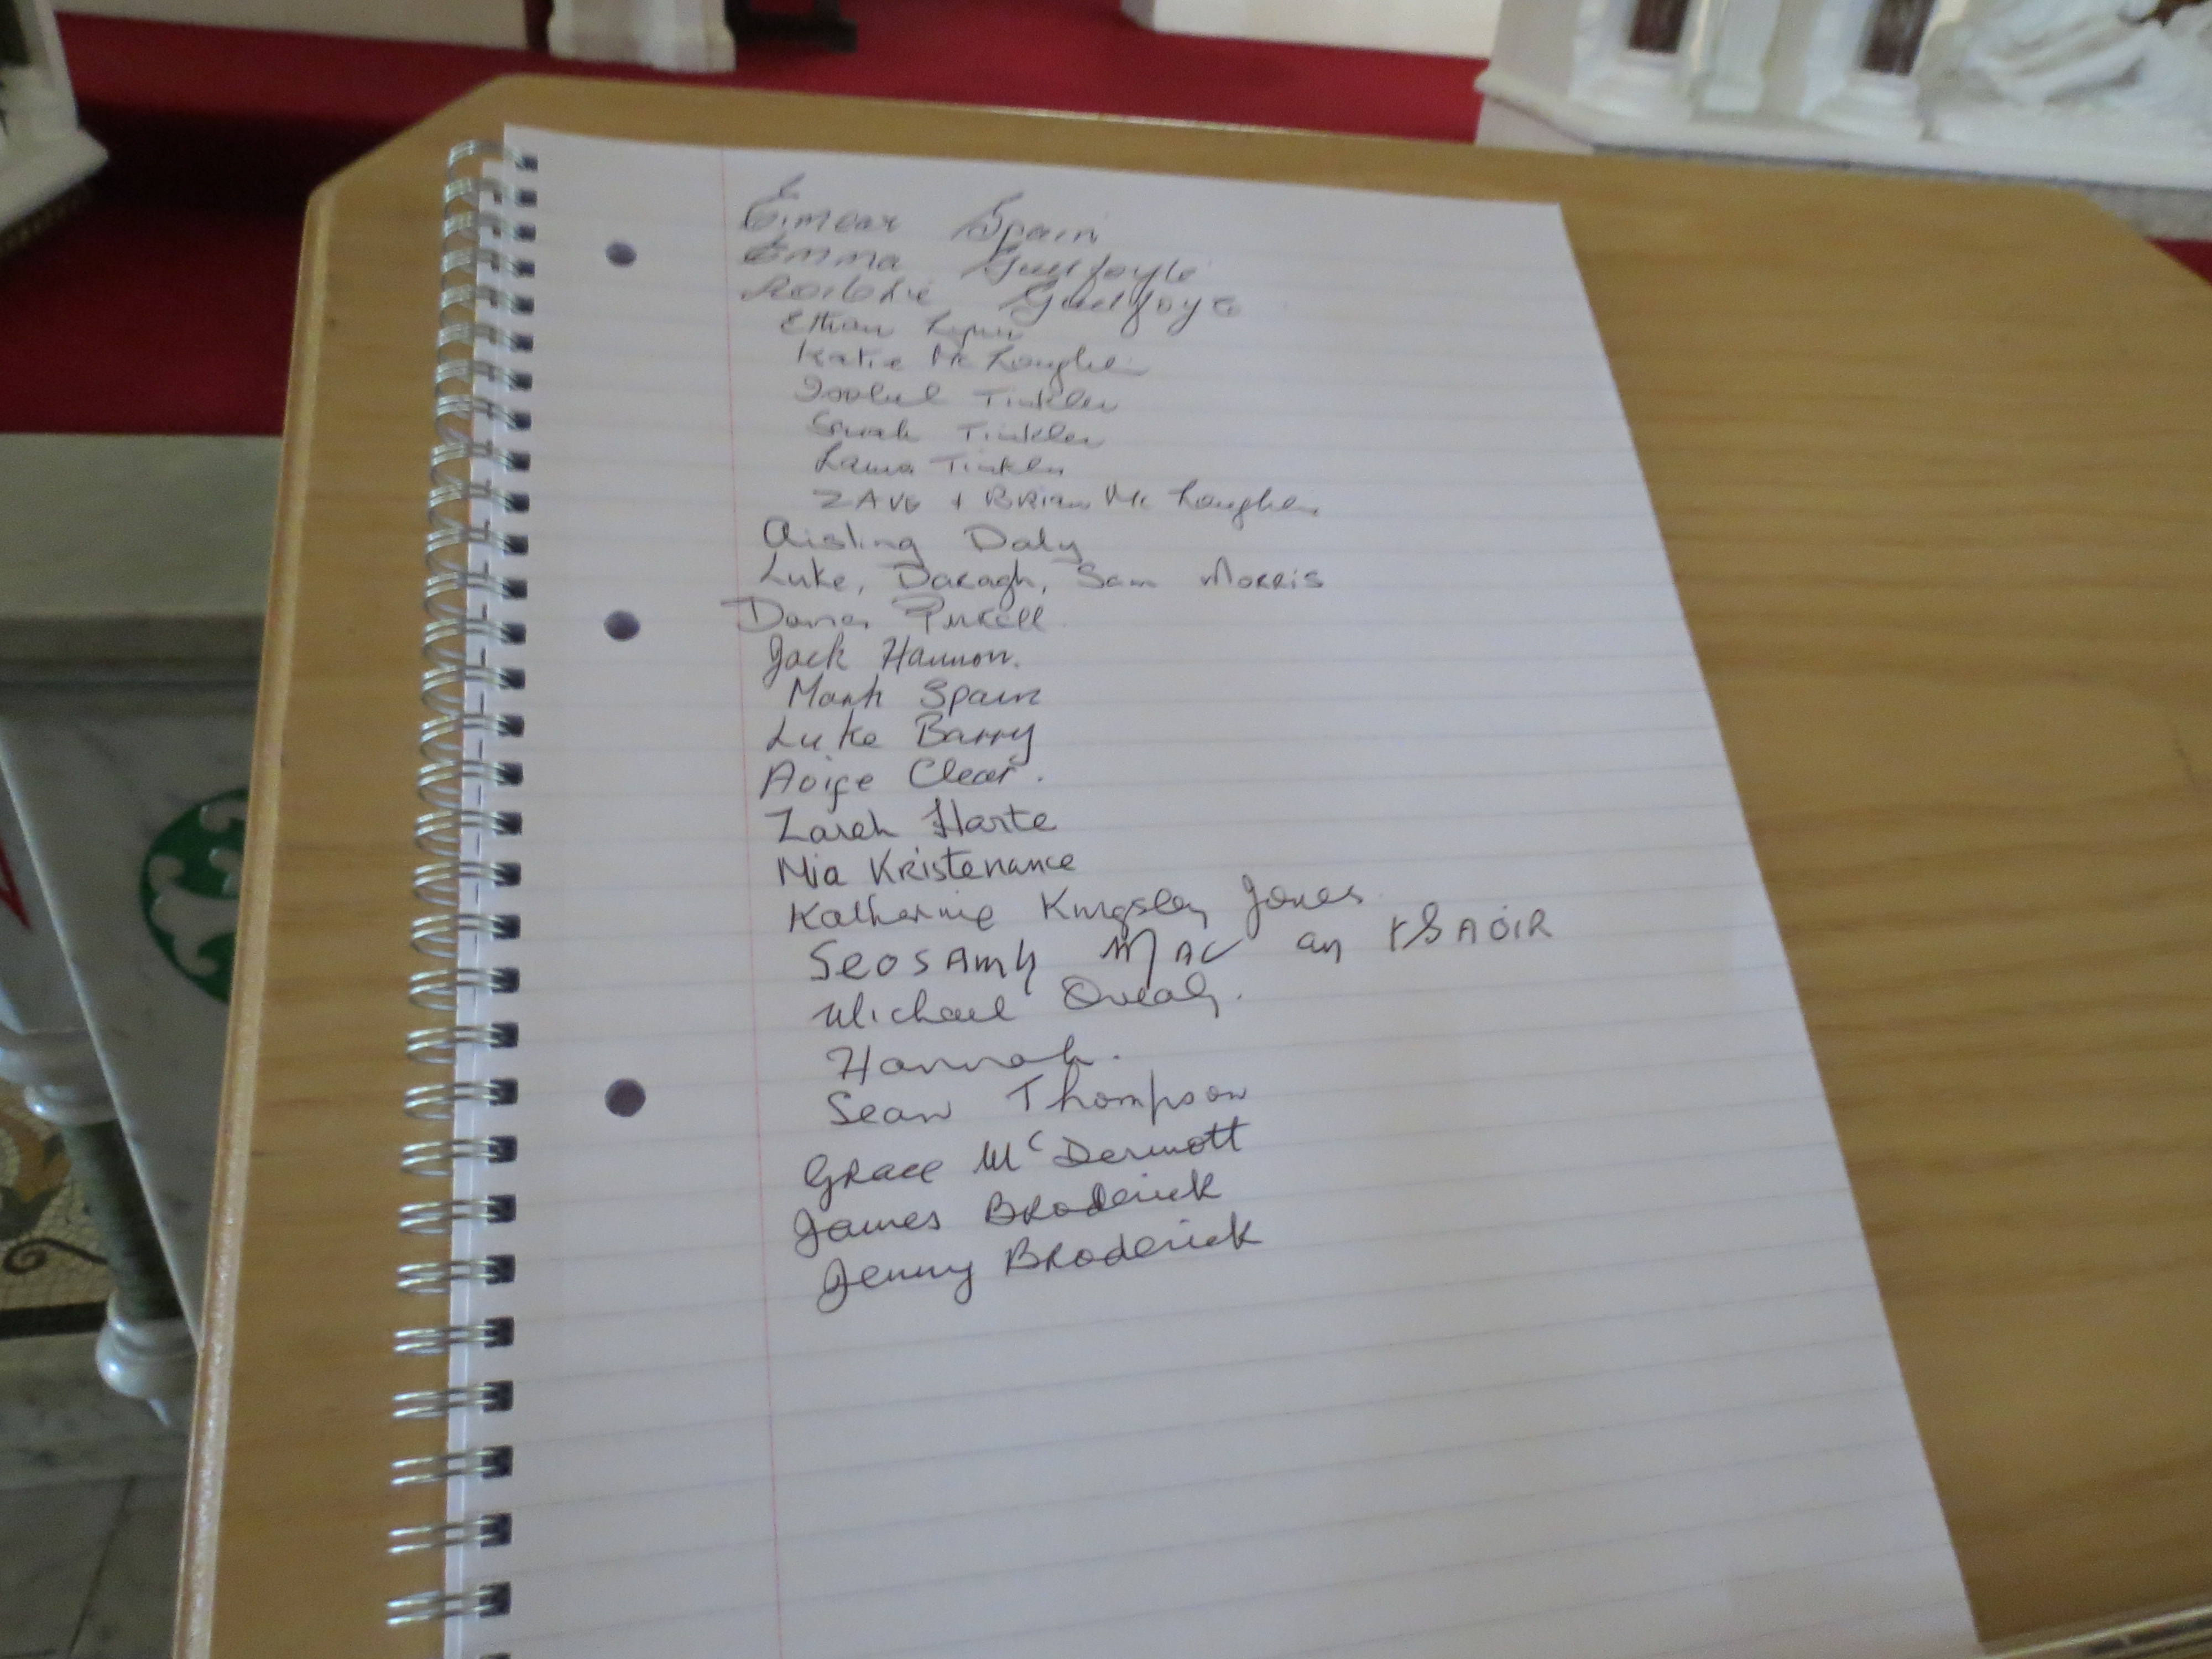 Eimear Spain
Emma Guilfoyle
Guilfoyle
Ethan Lynn
Katie Mc Loughlin
Isobel Tinkler
Sarah Tinkler
Laura Tinkler
+ Brian Mc Loughlin
Aisling Daly
Luke, Daragh, Sam Morris
Purcell
Jack Hannon.
Mark Spain
Luke Barry
Aoife Clear.
Zarah Harte
Mia Kristenance
Katherine Kingsley Jones
Seosamh Mac an tSAOIR
Michael
Hannah.
Sean Thompson
Grace McDermott
James Broderick
Jenny Broderick